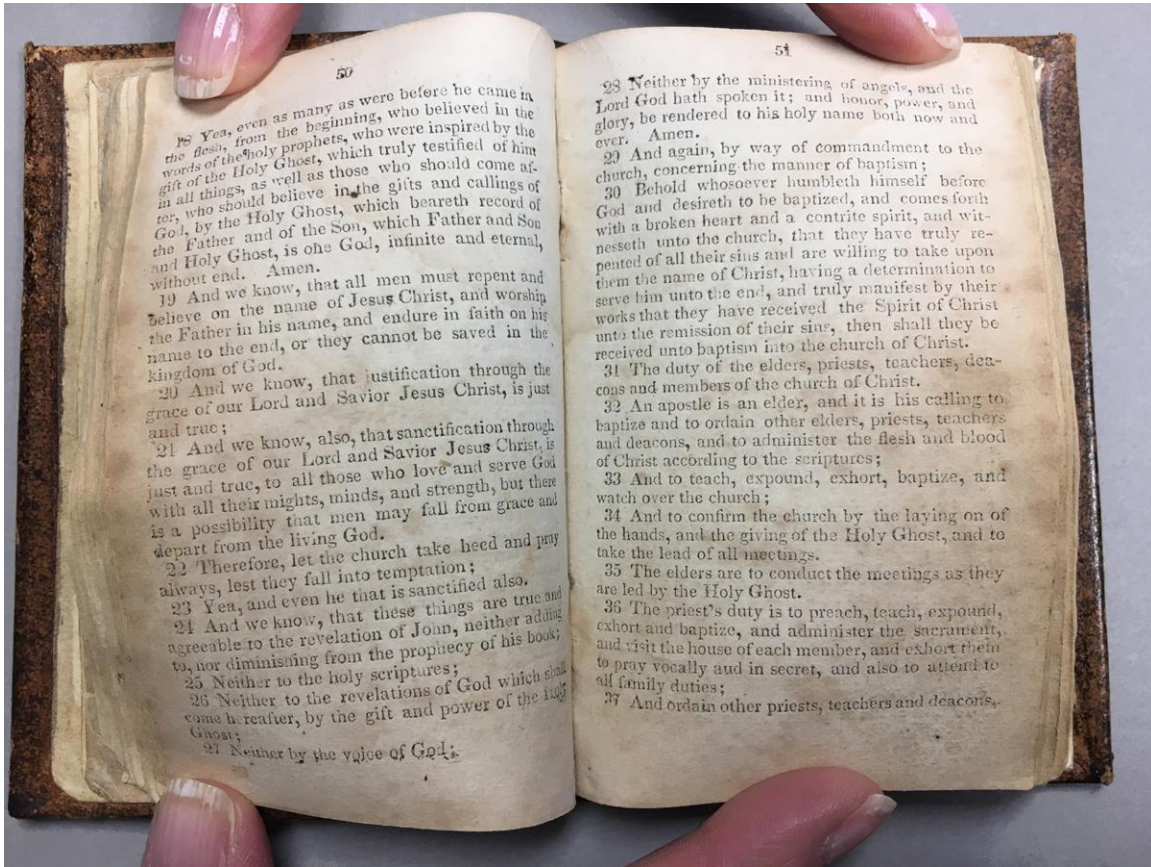 50
18 Yea, even as many as were before he came in
the flesh, from the beginning, who believed in the
words of the holy prophets, who were inspired by the
gift of the Holy Ghost, which truly testified of him
in all things, as well as those who should come af-
ter, who should believe in the gifts and callings of
God, by the Holy Ghost, which beareth record of
the Father and of the Son, which Father and Son
and Holy Ghost, is one God, infinite and eternal,
without end. Amen.
19 And we know, that all men must repent and
believe on the name of Jesus Christ, and worship
the Father in his name, and endure in faith on his
name to the end, or they cannot be saved in the
kingdom of God.
20 And we know, that justification through the
grace of our Lord and Savior Jesus Christ, is just
and true;
21 And we know, also, that sanctification through
the grace of our Lord and Savior Jesus Christ, is
just and true, to all those who love and serve God
with all their mights, minds, and strength, but there
is a possibility that men may fall from grace and
depart from the living God.
22 Therefore, let the church take heed and pray
always, lest they fall into temptation;
23 Yea, and even he that is sanctified also.
24 And we know, that these things are true and
agreeable to the revelation of John, neither adding
to, nor diminishing from the prophecy of his book;
25 Neither to the holy scriptures;
26 Neither to the revelations of God which shall
come hereafter, by the gift and power of the Holy
Ghost;
27 Neither by the voice of God;
51
28 Neither by the ministering of angels, and the
Lord God hath spoken it; and honor, power, and
glory, be rendered to his holy name both now and
ever. Amen.
29 And again, by way of commandment to the
church, concerning the manner of baptism;
30 Behold whosoever humbleth himself before
God and desireth to be baptized, and comes forth
with a broken heart and a contrite spirit, and wit-
nesseth unto the church, that they have truly re-
pented of all their sins and are willing to take upon
them the name of Christ, having a determination to
serve him unto the end, and truly manifest by their
works that they have received the Spirit of Christ
unto the remission of their sins, then shall they be
received unto baptism into the church of Christ.
31 The duty of the elders, priests, teachers, dea-
cons and members of the church of Christ.
32 An apostle is an elder, and it is his calling to
baptize and to ordain other elders, priests, teachers
and deacons, and to administer the flesh and blood
of Christ according to the scriptures;
33 And to teach, expound, exhort, baptize, and
watch over the church;
34 And to confirm the church by the laying on of
the hands, and the giving of the Holy Ghost, and to
take the lead of all meetings.
35 The elders are to conduct the meetings as they
are led by the Holy Ghost.
36 The priest's duty is to preach, teach, expound,
exhort and baptize, and administer the sacrament,
and visit the house of each member, and exhort them
to pray vocally aud in secret, and also to attend to
all family duties;
37 And ordain other priests, teachers and deacons,